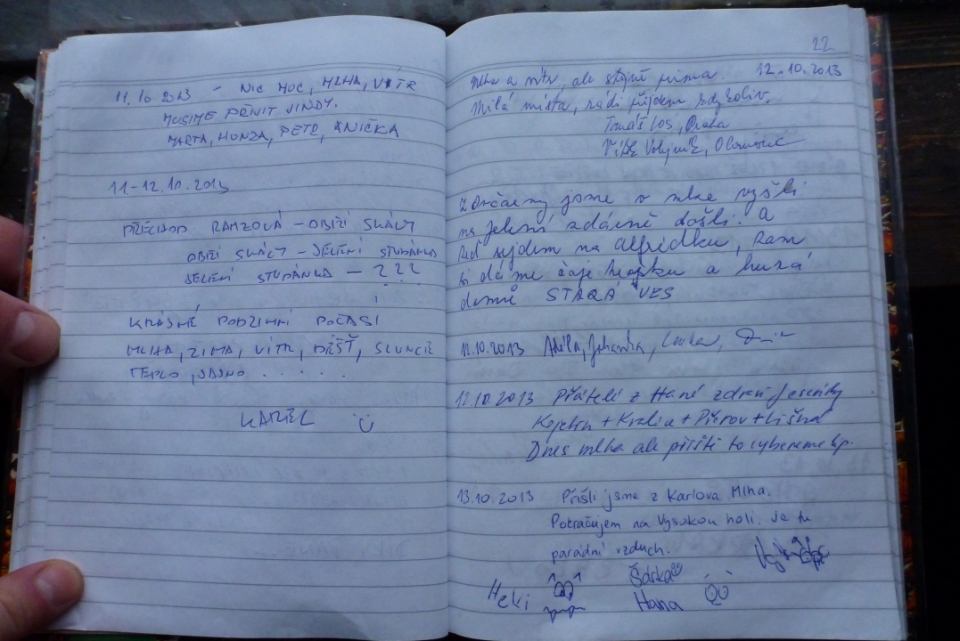 11.10 2013 - NIC MOC, MLHA, VÍTR
MUSIME PŘNIT JINDY.
MARTA, HONZA, PETR, ANIČKA
11-12.10.2013
PŘECHOD RAMZOVÁ - OBŘÍ SKÁLY
OBŘÍ SKÁLY - JELENÍ STUDÁNKA
JELENÍ STUDÁNKA - ???
KRÁSNÉ PODZIMNÍ POČASÍ
MLHA, ZIMA, VÍTR, DÉŠŤ, SLUNCE
TEPLO, JASNO . . . . .
KAREL
22
Mlha a vítr, ale stejně prima. 12.10.2013
Milá místa, rádi přijdem kdykoliv.
Tomáš Los, Praha
Olomouc
jsme v mlze vyšli
na jelení zdárně došli. a
teď sejdem na alfrédku, tam
si dáme čaje a hurá
domů STARÁ VES
12.10.2013 Lenka,
12.10 2013 Přátelé z Hané zdraví Jeseníky
Kojetín + Kralice + Přerov + Líšná
Dnes mlha ale příště to vybereme líp.
13.10.2013 Přišli jsme z Karlova Mlha.
Pokračujem na Vysokou holi. Je tu
parádní vzduch.
Heki Šárka
Hana